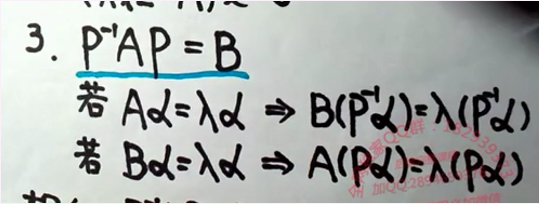 3. P⁻¹AP = B
若 Aα=λα ⇒ B(P⁻¹α)=λ(P⁻¹α)
若 Bα=λα ⇒ A(Pα)=λ(Pα)